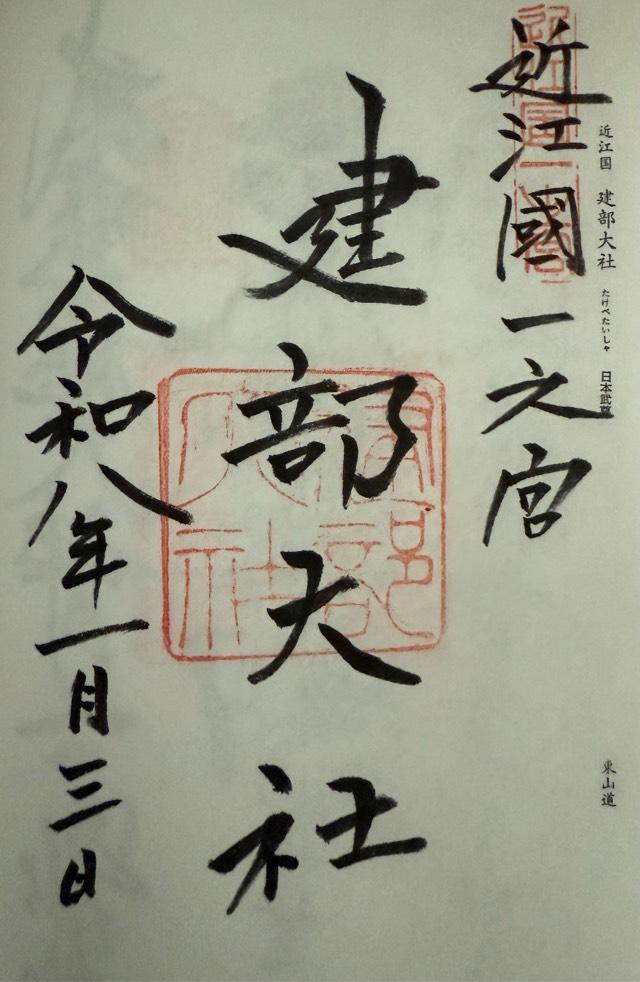 近江国 建部大社 たけべたいしゃ 日本武尊
東山道
近江國一之宮
近江国一之宮
建部大社
建部大社
令和八年一月三日